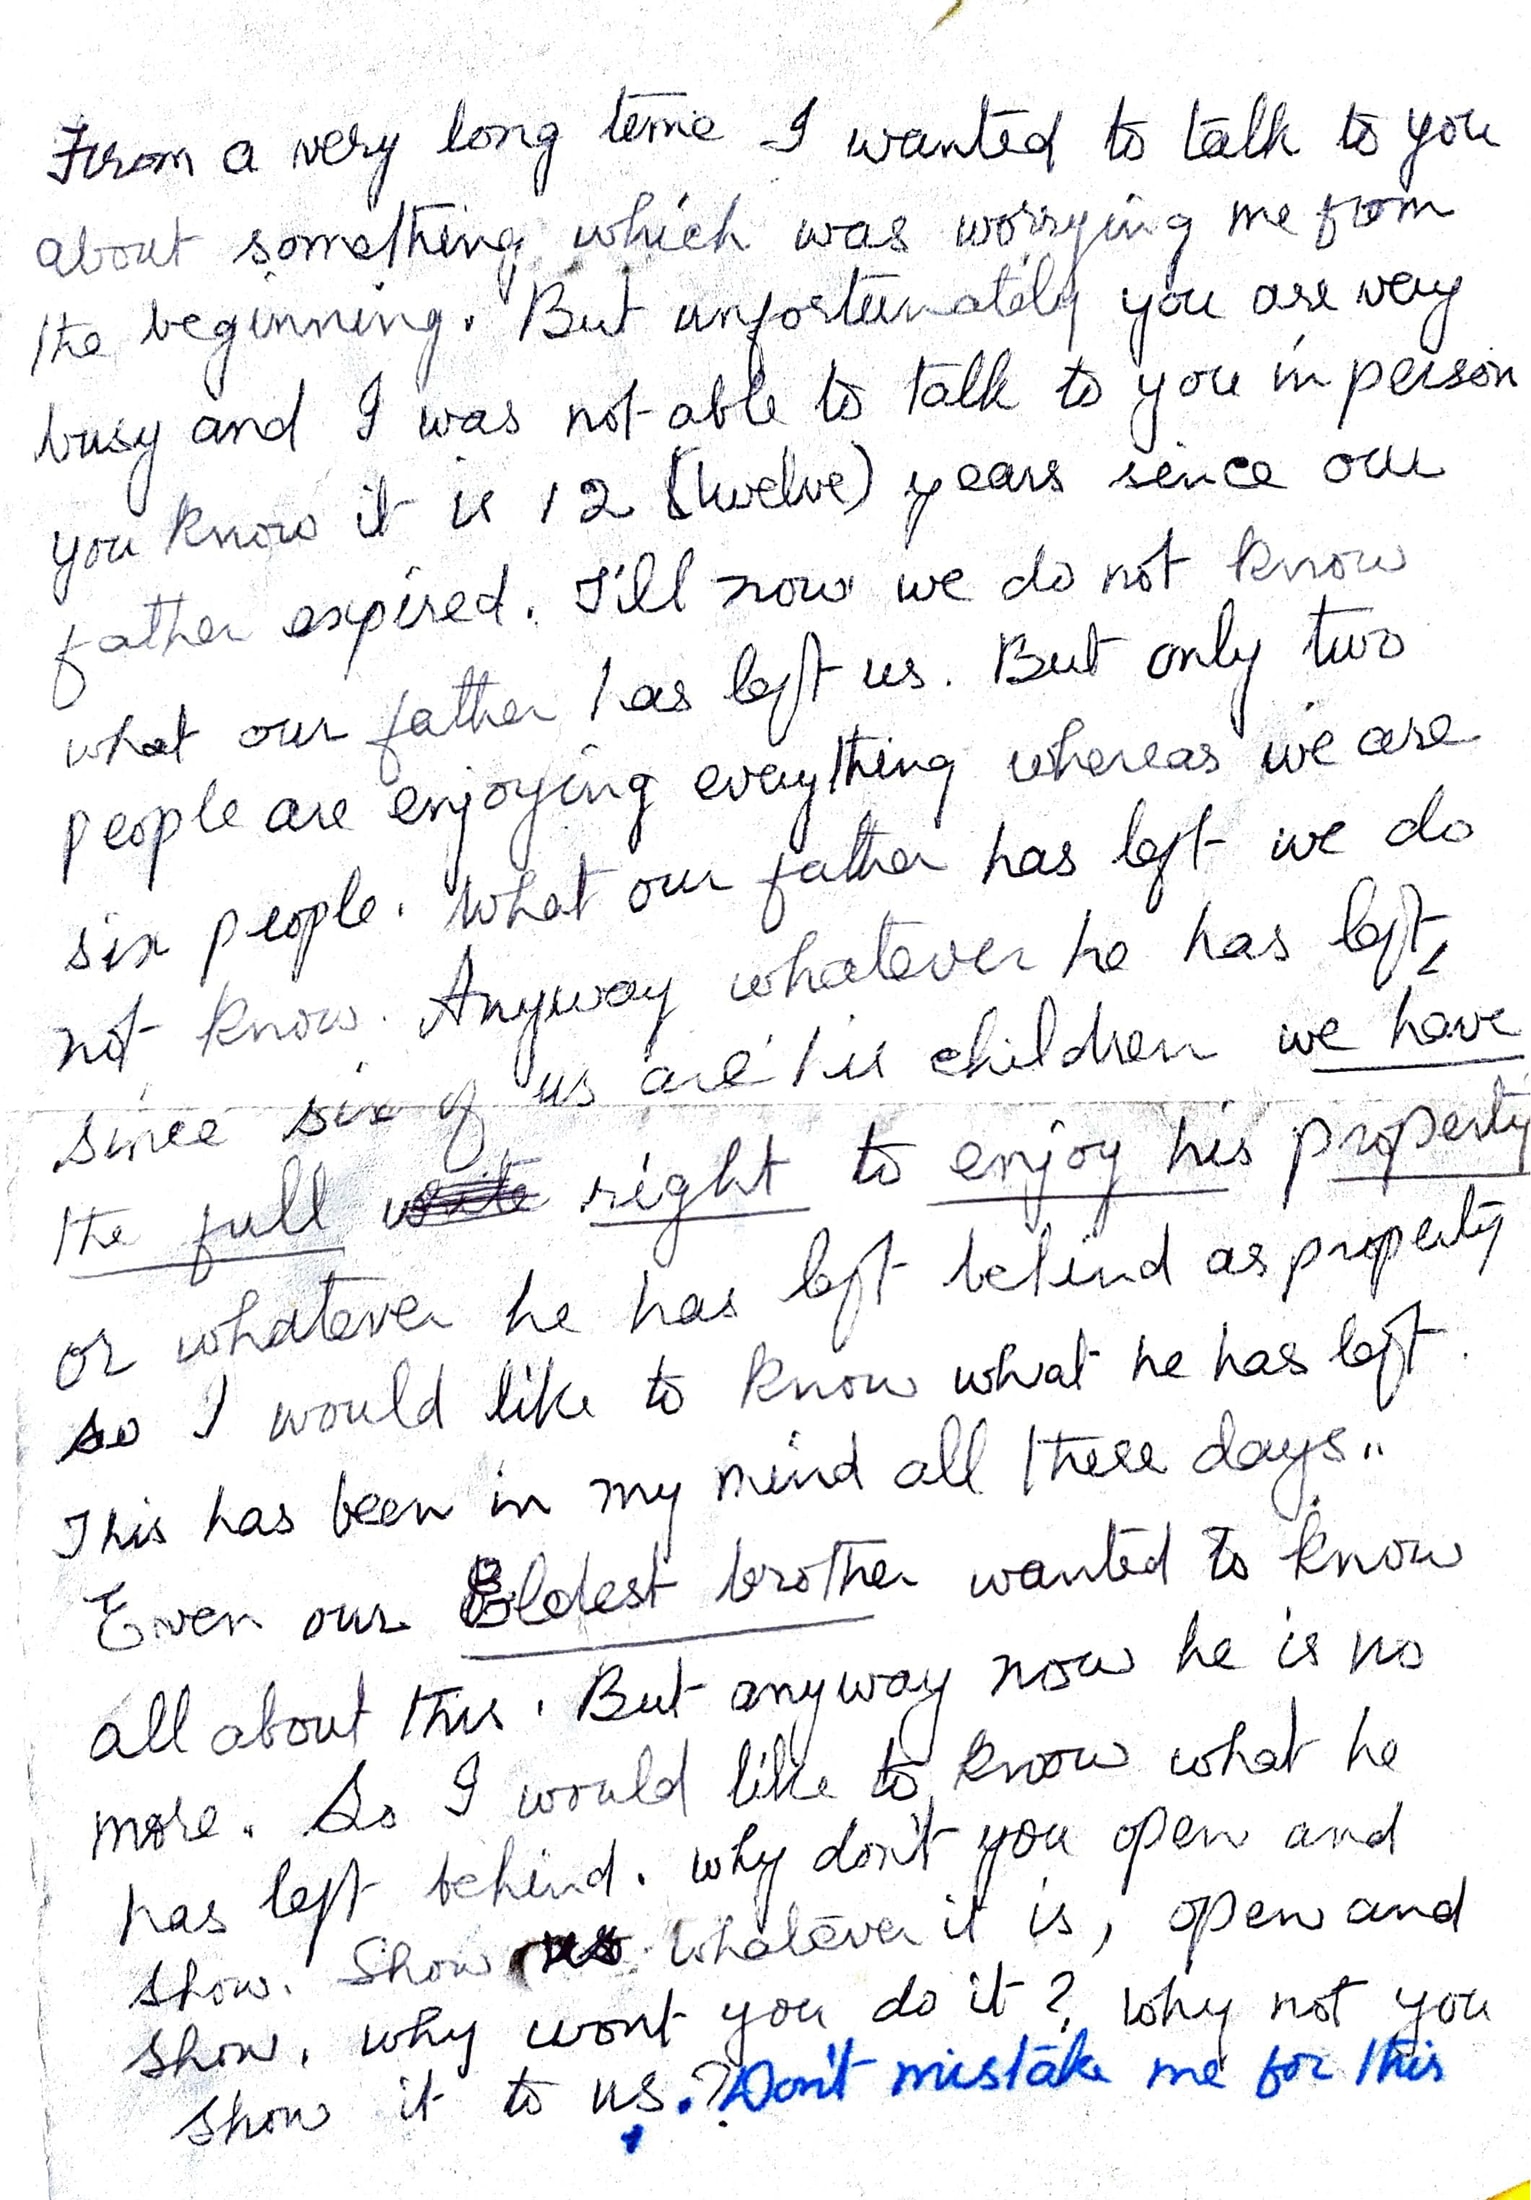 From a very long time I wanted to talk to you
about something which was worrying me from
the beginning. But unfortunately you are very
busy and I was not able to talk to you in person
you know it is 12 (twelve) years since our
father expired. Till now we do not know
what our father has left us. But only two
people are enjoying everything whereas we are
six people. What our father has left we do
not know. Anyway whatever he has left,
since six of us are his children we have
the full right to enjoy his property
or whatever he has left behind as property
so I would like to know what he has left.
This has been in my mind all these days..
Even our Eldest brother wanted to know
all about this. But anyway now he is no
more. So I would like to know what he
has left behind. why don't you open and
show. Show us whatever it is, open and
show. why wont you do it? Why not you
show it to us.? Don't mistake me for this